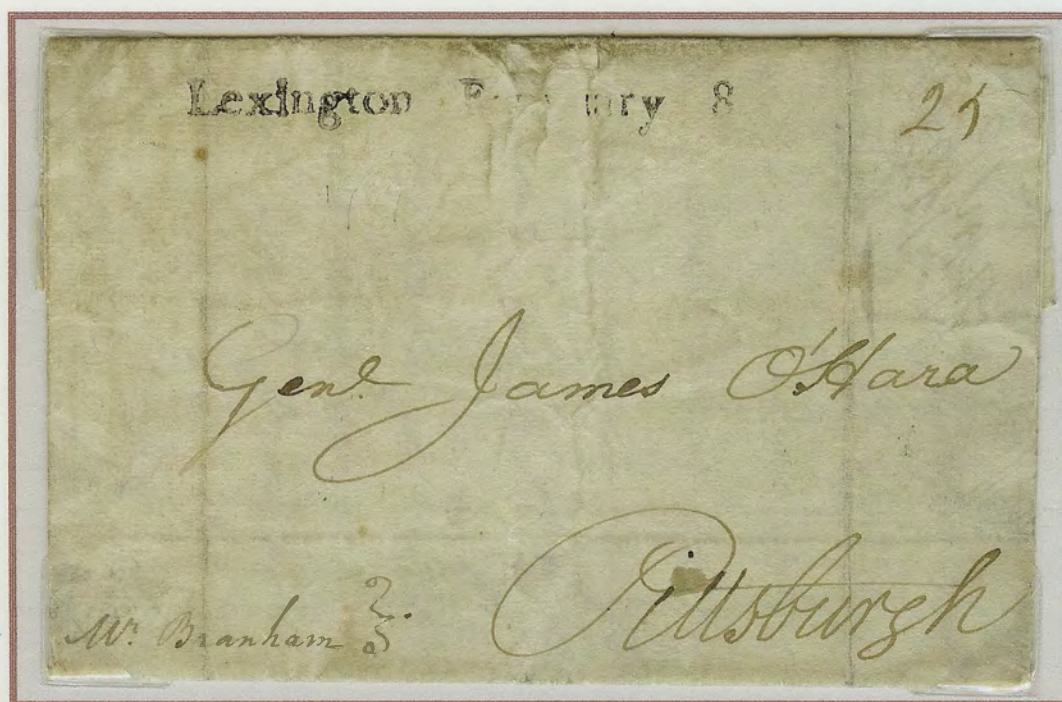 Lexington 8
25
Genl. James O'Hara
Pittsburgh
Mr. Branham